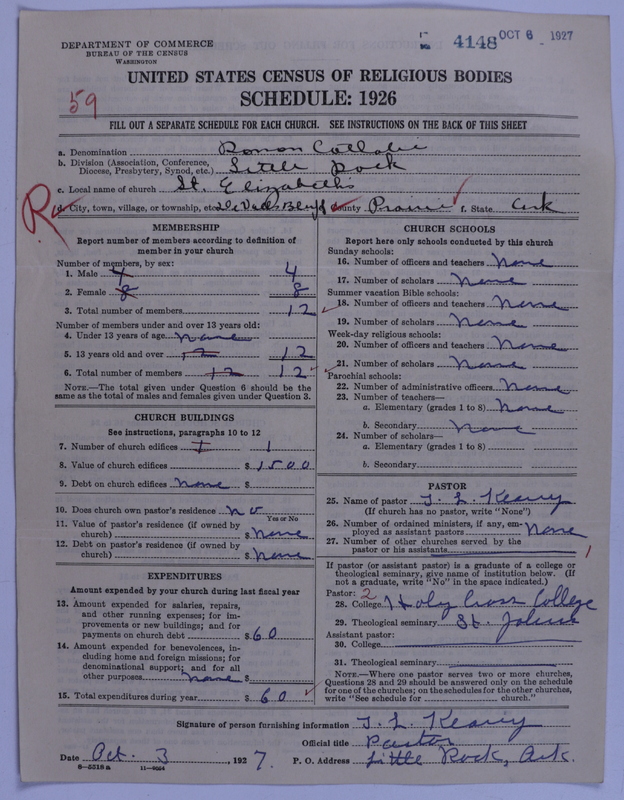 DEPARTMENT OF COMMERCE
BUREAU OF THE CENSUS
WASHINGTON
4148 OCT 6 1927
UNITED STATES CENSUS OF RELIGIOUS BODIES
SCHEDULE: 1926
59
FILL OUT A SEPARATE SCHEDULE FOR EACH CHURCH. SEE INSTRUCTIONS ON THE BACK OF THIS SHEET
a. Denomination Roman Catholic
b. Division (Association, Conference, Diocese, Presbytery, Synod, etc.) Little Rock
c. Local name of church St. Elizabeth's
R
d. City, town, village, or township, etc. De Valls Bluff e. County Prairie f. State Ark
MEMBERSHIP
Report number of members according to definition of
member in your church
Number of members, by sex:
1. Male 4 4
2. Female 8 8
3. Total number of members 12
Number of members under and over 13 years old:
4. Under 13 years of age none
5. 13 years old and over 12 12
6. Total number of members 12 12
NOTE.—The total given under Question 6 should be the
same as the total of males and females given under Question 3.
CHURCH BUILDINGS
See instructions, paragraphs 10 to 12
7. Number of church edifices 1 1
8. Value of church edifices $1500
9. Debt on church edifices none $
10. Does church own pastor's residence no
Yes or No
11. Value of pastor's residence (if owned by
church) $ none
12. Debt on pastor's residence (if owned by
church) $ none
EXPENDITURES
Amount expended by your church during last fiscal year
13. Amount expended for salaries, repairs,
and other running expenses; for im-
provements or new buildings; and for
payments on church debt $60
14. Amount expended for benevolences, in-
cluding home and foreign missions; for
denominational support; and for all
other purposes none $
15. Total expenditures during year $60
CHURCH SCHOOLS
Report here only schools conducted by this church
Sunday schools:
16. Number of officers and teachers none
17. Number of scholars none
Summer vacation Bible schools:
18. Number of officers and teachers none
19. Number of scholars none
Week-day religious schools:
20. Number of officers and teachers none
21. Number of scholars none
Parochial schools:
22. Number of administrative officers none
23. Number of teachers—
a. Elementary (grades 1 to 8) none
b. Secondary none
24. Number of scholars—
a. Elementary (grades 1 to 8)
b. Secondary
PASTOR
25. Name of pastor T. L. Keany
(If church has no pastor, write "None")
26. Number of ordained ministers, if any, em-
ployed as assistant pastors none
27. Number of other churches served by the
pastor or his assistants 1
If pastor (or assistant pastor) is a graduate of a college or
theological seminary, give name of institution below. (If
not a graduate, write "No" in the space indicated.)
Pastor: 2
28. College Holy Cross College
29. Theological seminary St. Johns
Assistant pastor:
30. College
31. Theological seminary
NOTE.—Where one pastor serves two or more churches,
Questions 28 and 29 should be answered only on the schedule
for one of the churches; on the schedules for the other churches,
write "See schedule for ........ church."
Signature of person furnishing information T. L. Keany
Official title Pastor
Date Oct. 3, 1927. P. O. Address Little Rock, Ark.
8—5518a 11—9054